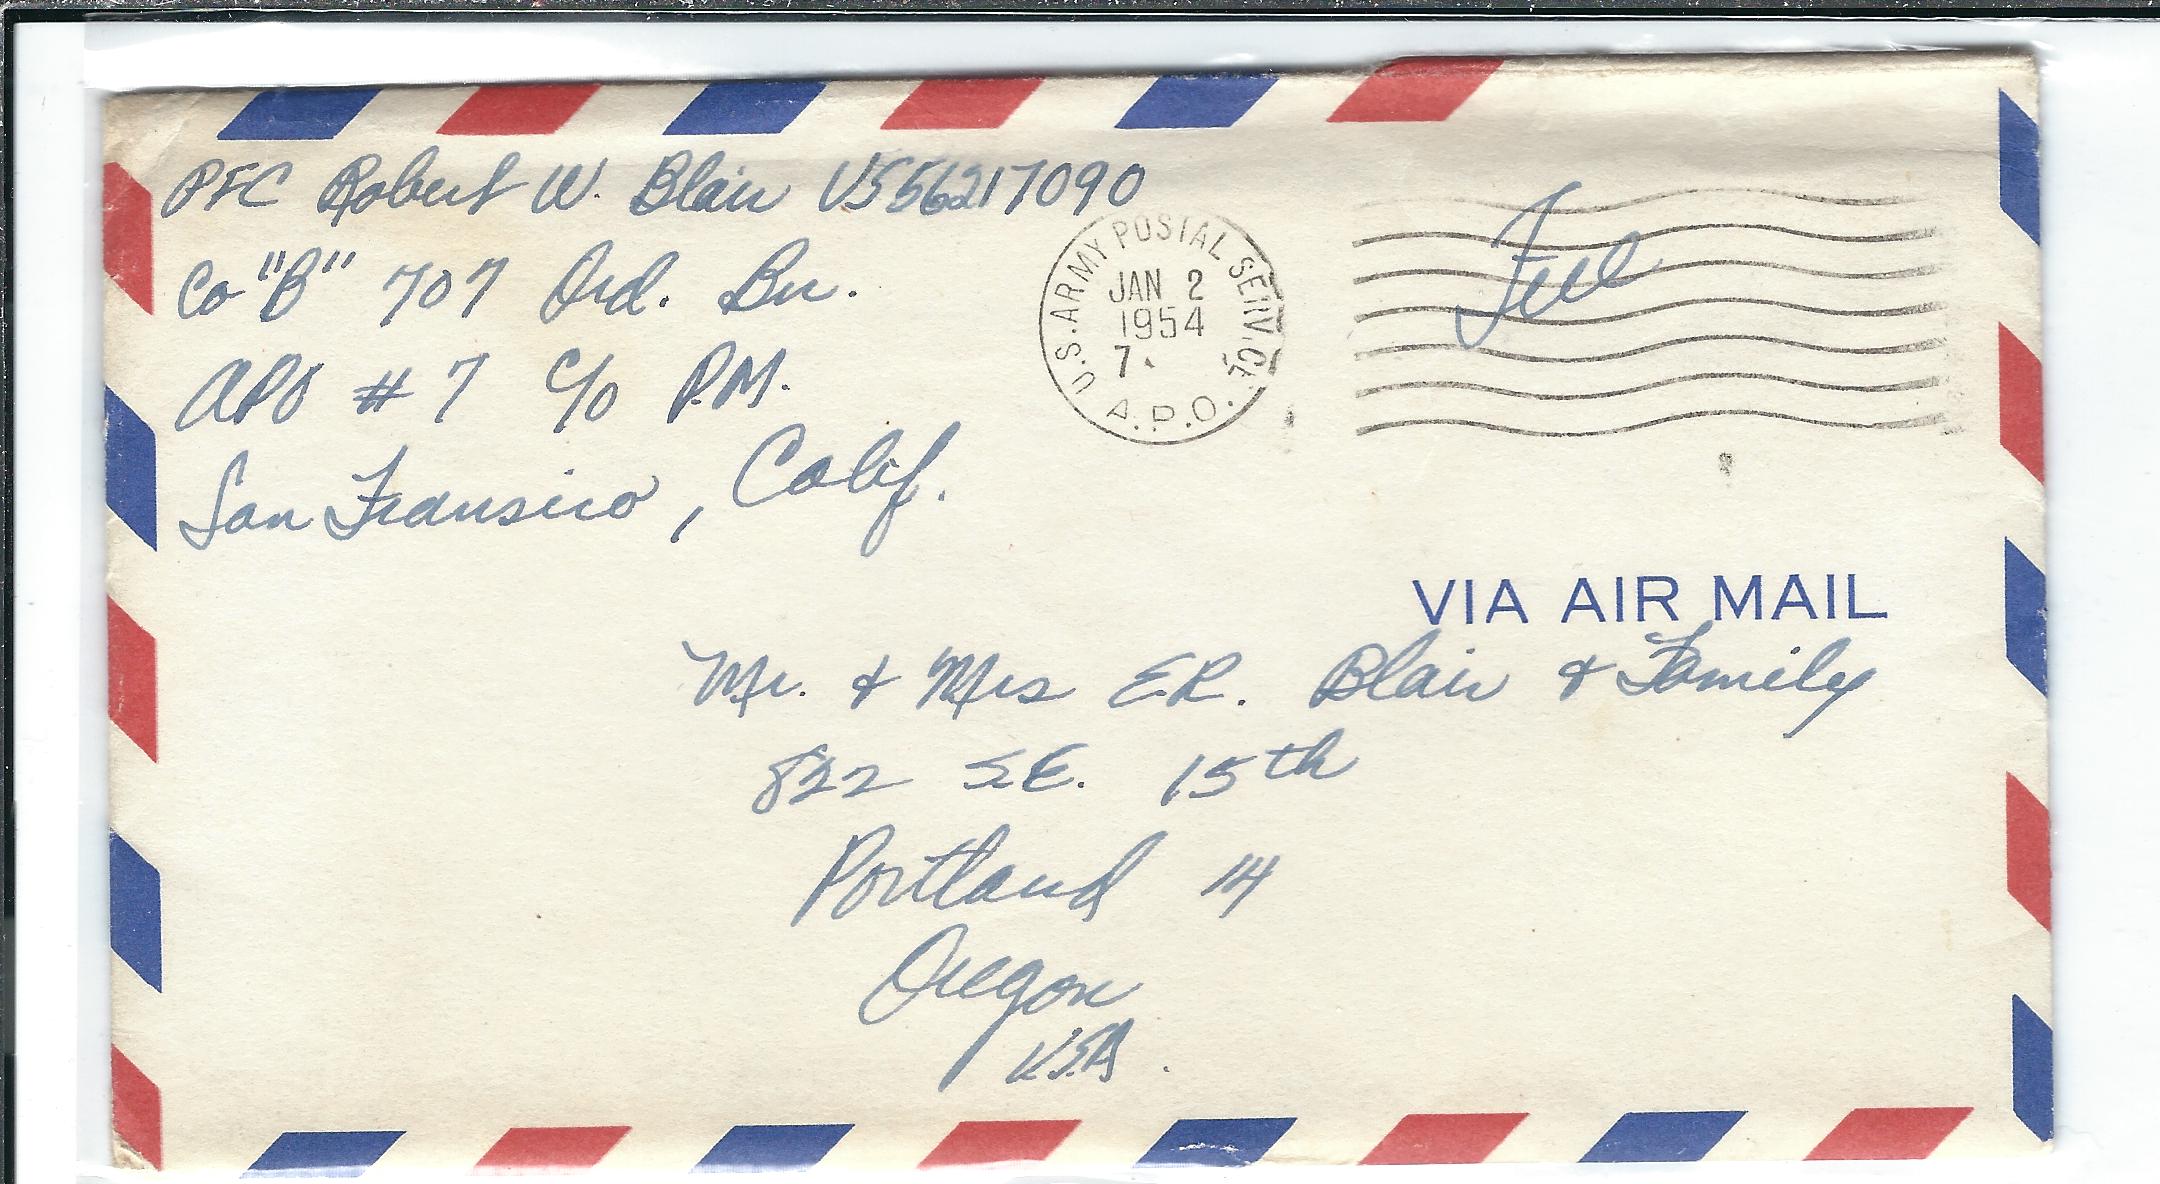 PFC Robert W. Blair US56217090
Co "B" 707 Ord. Bn.
APO # 7 c/o P.M.
San Fransisco, Calif.
U.S. ARMY POSTAL SERVICE
JAN 2
1954
7
A.P.O.
Free
VIA AIR MAIL
Mr. & Mrs E.R. Blair & Family
822 S.E. 15th
Portland 14
Oregon
U.S.A.